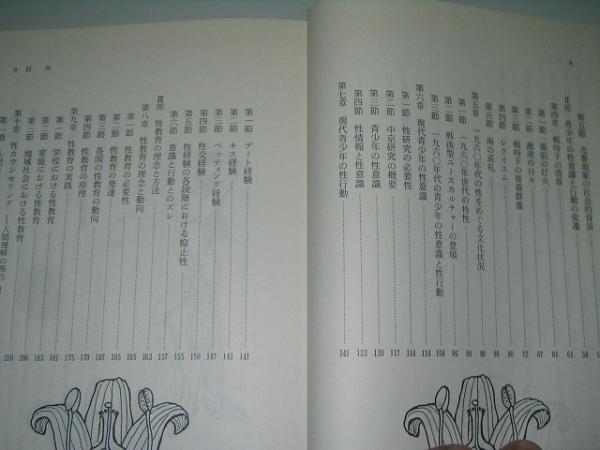 第五節 売春現象の社会的背景 59
II部 青少年の性意識と行動の変遷 61
第四章 戦時下の青春 61
第一節 風前の灯火 61
第二節 激流の日々 67
第三節 戦時下の青春群像 72
第四節 レクイエム 80
第五節 心の巡礼
第五章 一九六〇年代の性をめぐる文化状況 90
第一節 一九六〇年世代の特性 90
第二節 戦後型ユースカルチャーの登場 96
第三節 一九六〇年代の青少年の性意識と性行動 104
第六章 現代青少年の性意識 114
第一節 性研究の必要性 114
第二節 中京研究の概要 117
第三節 青少年の性意識 120
第四節 性情報と性意識 133
第七章 現代青少年の性行動 141
9 目次
第一節 デート経験 141
第二節 キス経験 143
第三節 ペッティング経験 147
第四節 性交経験 150
第五節 性経験の各段階における抑止性 155
第六節 意識と行動とのズレ 157
III部 性教育の理念と方法 163
第八章 性教育の理念と動向 163
第一節 性教育の必要性 165
第二節 性教育の発達 165
第三節 各国の性教育の動向 167
第四節 性教育の原理 170
第九章 性教育の実践 175
第一節 学校における性教育 181
第二節 家庭における性教育 183
第三節 地域社会における性教育 206
第十章 性カウンセリング ―人間理解の視点 210